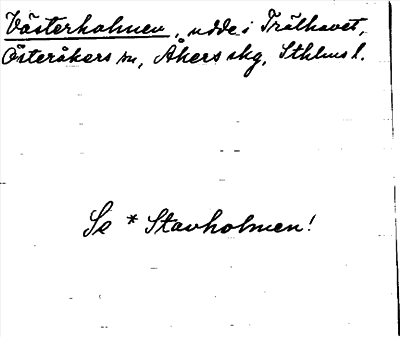 Västerholmen, udde i Trälhavet,
Österåkers sn, Åkers skg, Sthlms l.
Se * Stavholmen!